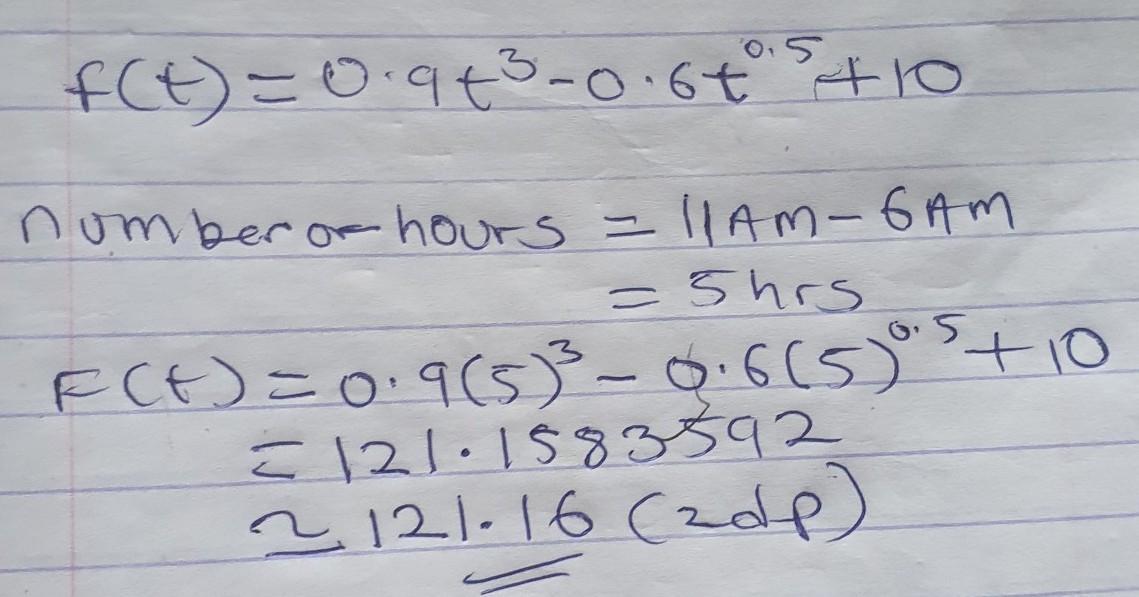 f(t) = 0.9t³ - 0.6t⁰·⁵ + 10
number of hours = 11AM - 6AM
= 5hrs
F(t) = 0.9(5)³ - 0.6(5)⁰·⁵ + 10
= 121.1583592
≃ 121.16 (2dp)